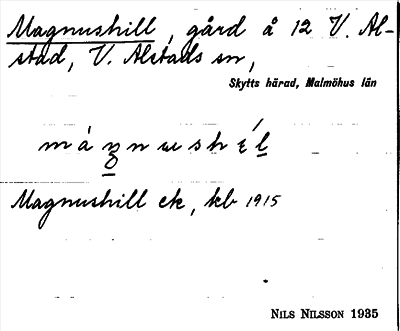 Magnushill, gård å 12 V. Al-
stad, V. Alstads sn,
Skytts härad, Malmöhus län
Magnushill ek, kb 1915
NILS NILSSON 1935